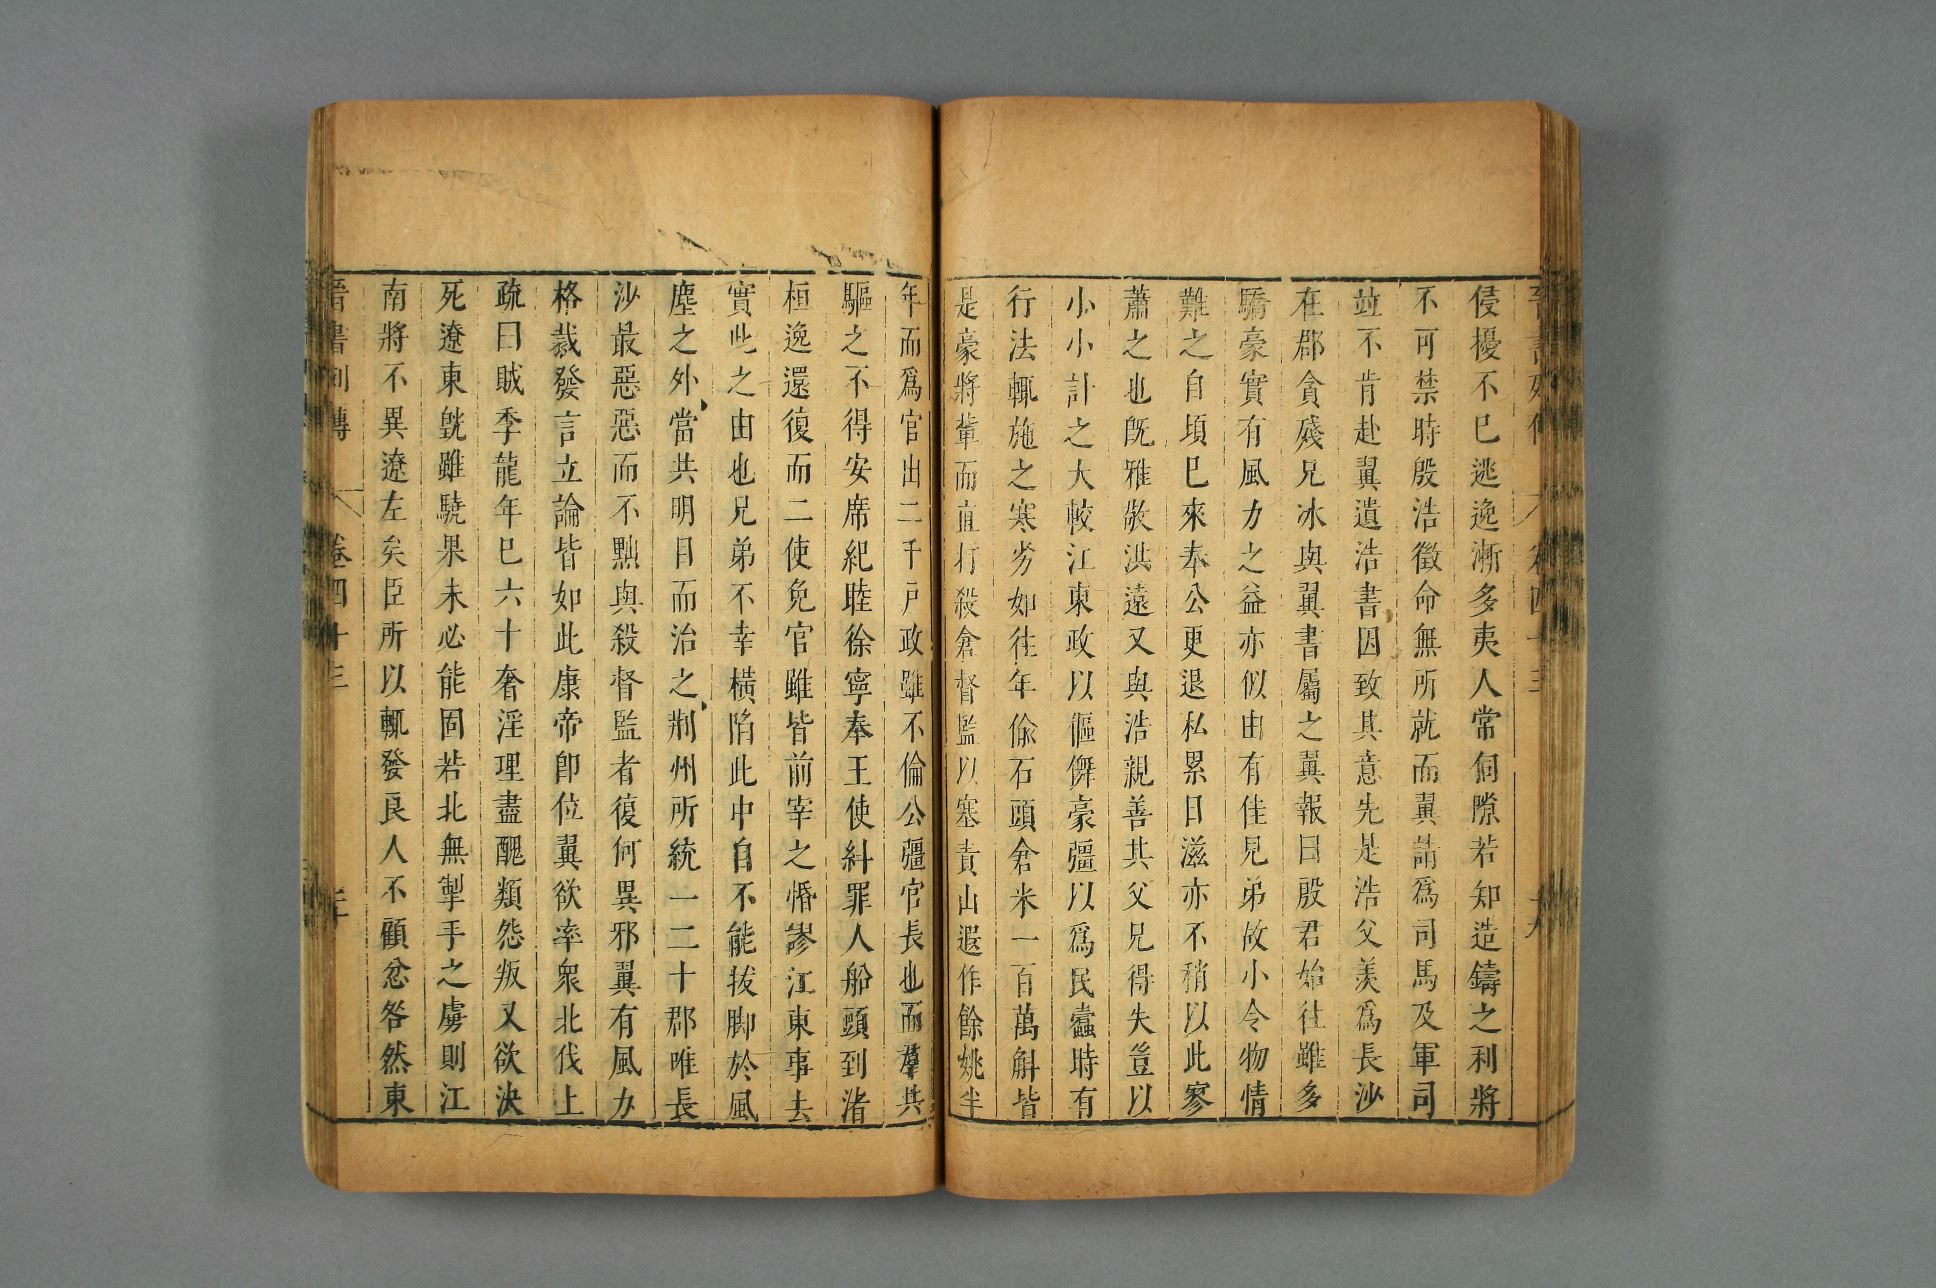 晉書列傳 卷四十三 十九
侵擾不已逃逸漸多夷人常伺隙若知造鑄之利將
不可禁時殷浩徵命無所就而翼請爲司馬及軍司
竝不肯赴翼遺浩書因致其意先是浩父羨爲長沙
在郡貪殘兄冰與翼書屬之翼報曰殷君始往雖多
驕豪實有風力之益亦似由有佳兒弟故小令物情
難之自頃已來奉公更退私累日滋亦不稍以此寥
蕭之也旣雅敬洪遠又與浩親善其父兄得失豈以
小小計之大較江東政以傴儛豪彊以爲民蠹時有
行法輒施之寒劣如往年偷石頭倉米一百萬斛皆
是豪將輩而直打殺倉督監以塞責山遐作餘姚半
年而爲官出二千戶政雖不倫公彊官長也而羣共
驅之不得安席紀睦徐寧奉王使糾罪人船頭到渚
桓逸還復而二使免官雖皆前宰之惛謬江東事去
實此之由也兄弟不幸橫陷此中自不能拔脚於風
塵之外當共明目而治之荆州所統一二十郡唯長
沙最惡惡而不黜與殺督監者復何異邪翼有風力
格裁發言立論皆如此康帝卽位翼欲率衆北伐上
疏曰賊季龍年已六十奢淫理盡醜類怨叛又欲決
死遼東皝雖驍果未必能固若北無掣手之虜則江
南將不異遼左矣臣所以輒發良人不顧忿咎然東
晉書列傳 卷四十三 二十